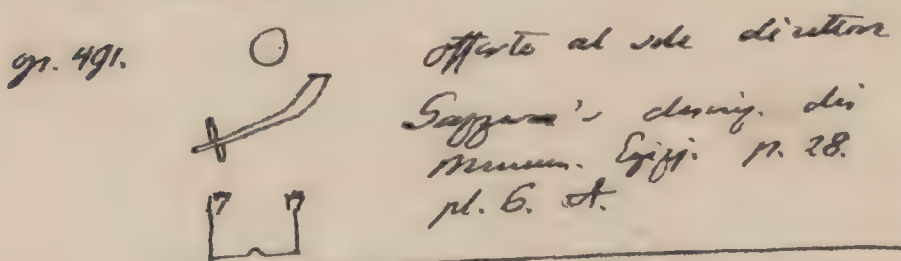 gr. 491.
offerto al sole direttore
descriz. dei
monum. Egizj. p. 28.
pl. 6. A.